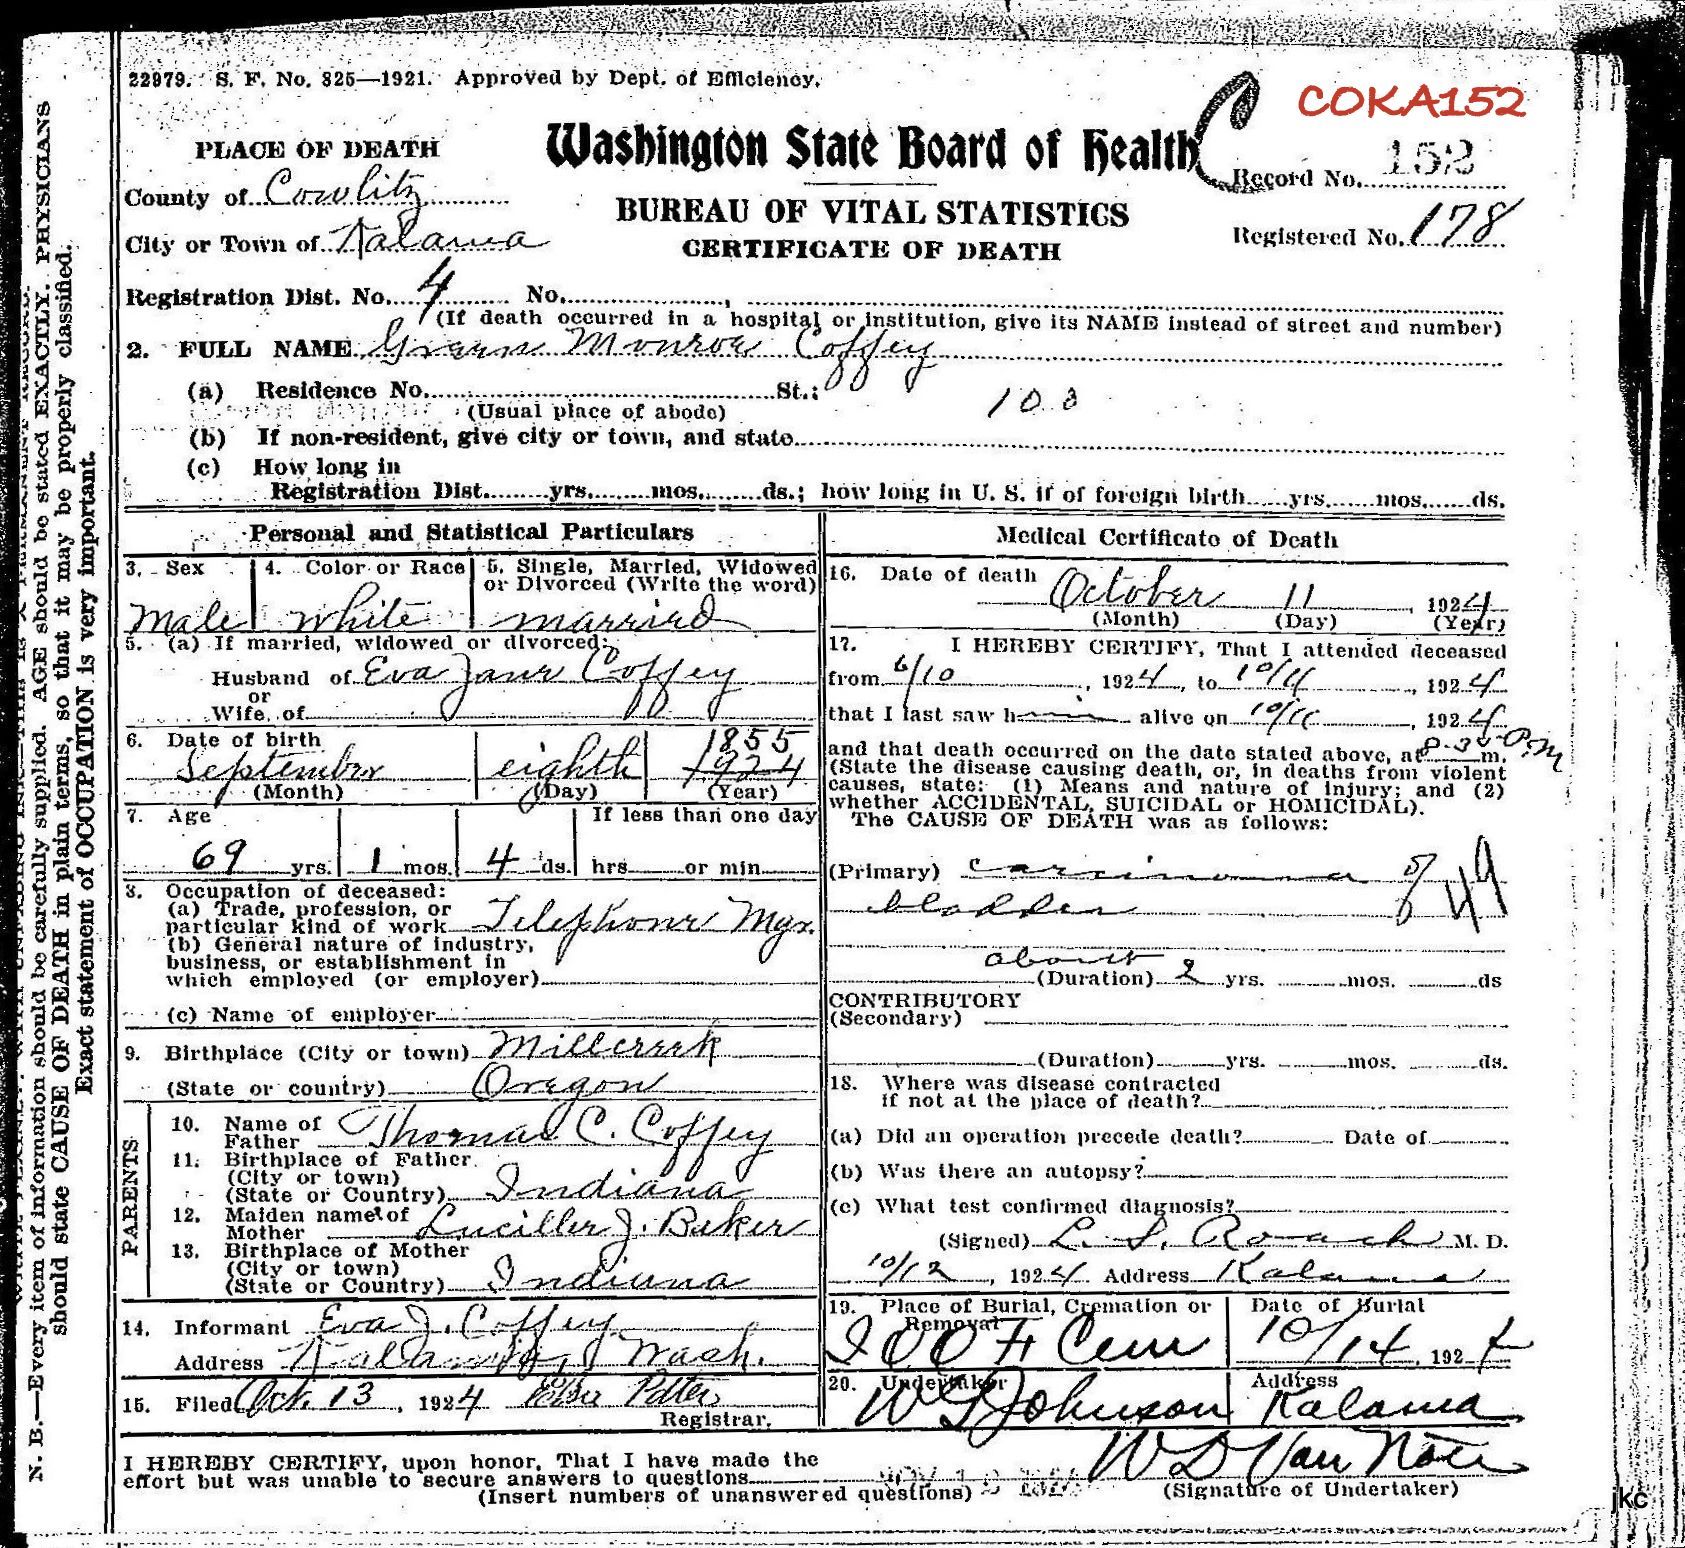 22979. S. F. No. 825—1921. Approved by Dept. of Efficiency.
COKA152
PLACE OF DEATH
Washington State Board of Health
C
Record No. 152
County of Cowlitz
BUREAU OF VITAL STATISTICS
City or Town of Kalama
CERTIFICATE OF DEATH
Registered No. 178
Registration Dist. No. 4 No. ,
(If death occurred in a hospital or institution, give its NAME instead of street and number)
2. FULL NAME Green Monroe Coffey
(a) Residence No. St.;
103
(Usual place of abode)
(b) If non-resident, give city or town, and state
(c) How long in
Registration Dist. yrs. mos. ds.; how long in U. S. if of foreign birth yrs. mos. ds.
Personal and Statistical Particulars
3. Sex
Male
4. Color or Race
white
5. Single, Married, Widowed
or Divorced (Write the word)
married
5. (a) If married, widowed or divorced:
Husband of Eva Jane Coffey
or
Wife of
6. Date of birth
1855
September eighth 1924
(Month) (Day) (Year)
7. Age
If less than one day
69 yrs. 1 mos. 4 ds. hrs or min
8. Occupation of deceased:
(a) Trade, profession, or
particular kind of work Telephone Mgr.
(b) General nature of industry,
business, or establishment in
which employed (or employer)
(c) Name of employer
9. Birthplace (City or town) Millcreek
(State or country) Oregon
PARENTS
10. Name of
Father Thomas C. Coffey
11. Birthplace of Father
(City or town)
(State or Country) Indiana
12. Maiden name of
Mother Luciller J. Baker
13. Birthplace of Mother
(City or town)
(State or Country) Indiana
14. Informant Eva J. Coffey
Address Kalama, Wash.
15. Filed Oct. 13, 1924 Potter
Registrar.
Medical Certificate of Death
16. Date of death
October 11, 1924
(Month) (Day) (Year)
17. I HEREBY CERTIFY, That I attended deceased
from 6/10, 1924, to 10/11, 1924
that I last saw him alive on 10/11, 1924
and that death occurred on the date stated above, at 8-30 P.M m.
(State the disease causing death, or, in deaths from violent
causes, state: (1) Means and nature of injury; and (2)
whether ACCIDENTAL, SUICIDAL or HOMICIDAL).
The CAUSE OF DEATH was as follows:
(Primary) carcinoma of
bladder
49
about
(Duration) 2 yrs. mos. ds
CONTRIBUTORY
(Secondary)
(Duration) yrs. mos. ds.
18. Where was disease contracted
if not at the place of death?
(a) Did an operation precede death? Date of
(b) Was there an autopsy?
(c) What test confirmed diagnosis?
(Signed) L. S. Roach M. D.
10/12, 1924 Address Kalama
19. Place of Burial, Cremation or
Removal
IOOF Cem
Date of Burial
10/14, 1924
20. Undertaker
W G Johnson
Address
Kalama
I HEREBY CERTIFY, upon honor, That I have made the
effort but was unable to secure answers to questions
(Insert numbers of unanswered questions)
W D Van Note
(Signature of Undertaker)
N. B.—Every item of information should be carefully supplied. AGE should be stated EXACTLY. PHYSICIANS
should state CAUSE OF DEATH in plain terms, so that it may be properly classified.
Exact statement of OCCUPATION is very important.
jkc